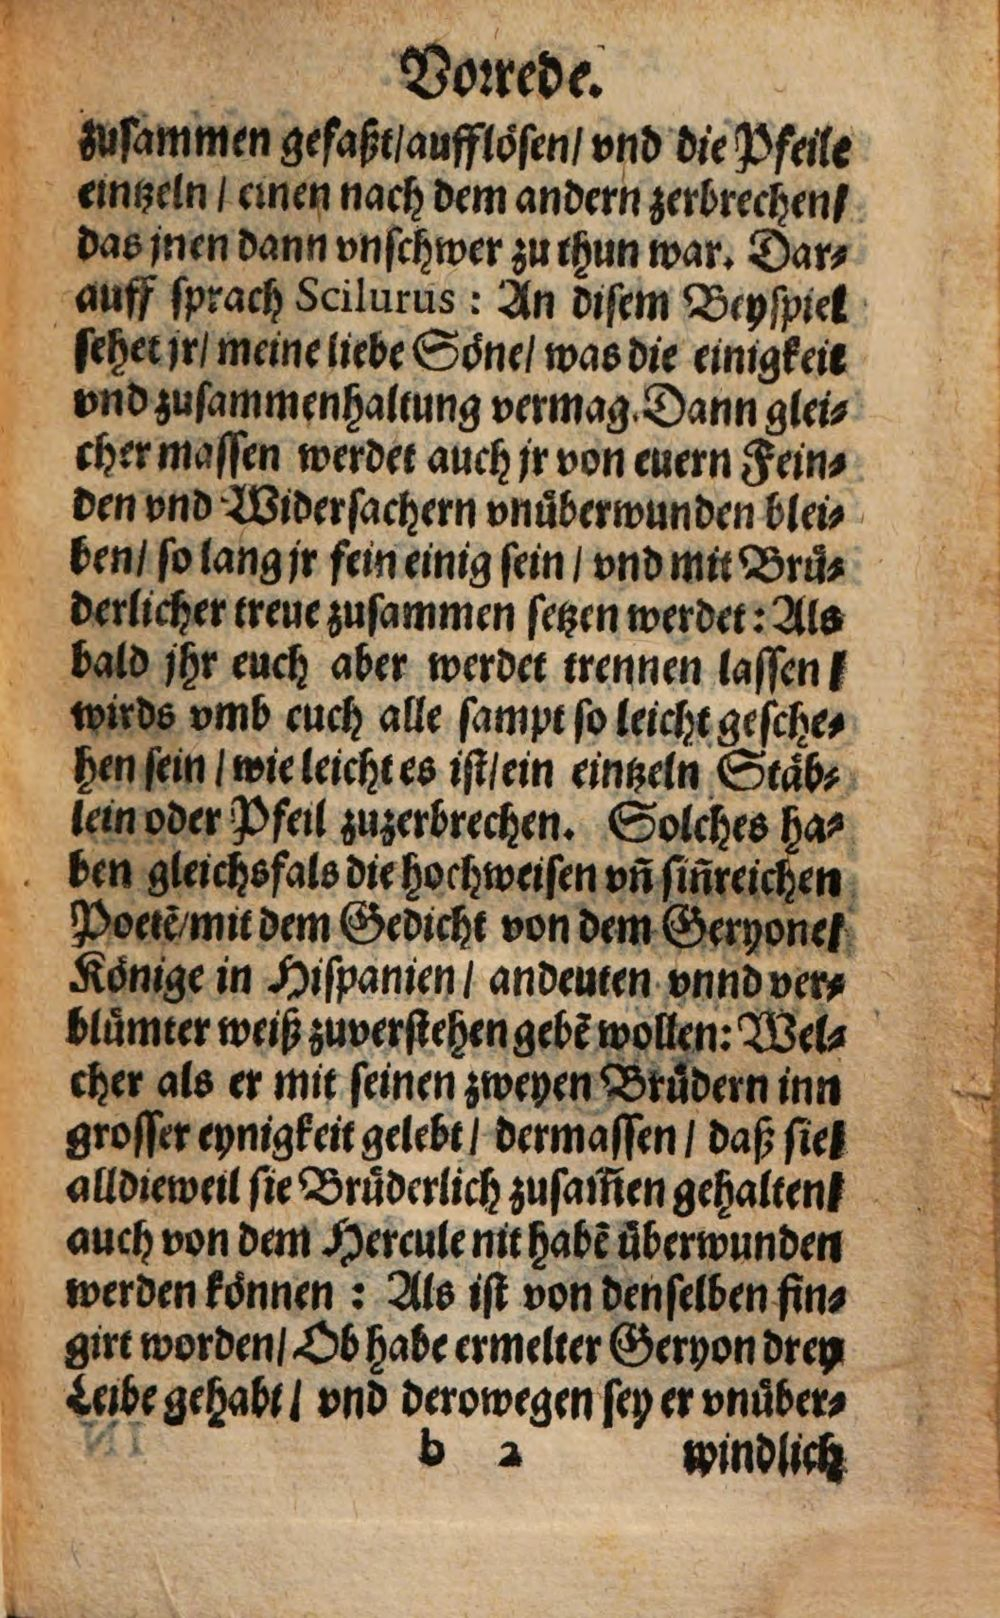 Vorrede.
zusammen gefaßt/aufflösen/ vnd die Pfeile
eintzeln / einen nach dem andern zerbrechen/
das jnen dann vnschwer zu thun war. Dar⸗
auff sprach Scilurus : An disem Beyspiel
sehet jr/ meine liebe Söne/ was die einigkeit
vnd zusammenhaltung vermag. Dann glei⸗
cher massen werdet auch jr von euern Fein⸗
den vnd Widersachern vnüberwunden blei⸗
ben/ so lang jr fein einig sein / vnd mit Brü⸗
derlicher treue zusammen setzen werdet: Als
bald jhr euch aber werdet trennen lassen /
wirds vmb euch alle sampt so leicht gesche⸗
hen sein / wie leicht es ist/ein eintzeln Stäb⸗
lein oder Pfeil zuzerbrechen. Solches ha⸗
ben gleichsfals die hochweisen vn̄ sin̄reichen
Poetē/mit dem Gedicht von dem Geryone/
Könige in Hispanien / andeuten vnnd ver⸗
blümter weiß zuverstehen gebē wollen: Wel⸗
cher als er mit seinen zweyen Brüdern inn
grosser eynigkeit gelebt / dermassen / daß sie/
alldieweil sie Brüderlich zusam̄en gehalten/
auch von dem Hercule nit habē überwunden
werden können : Als ist von denselben fin⸗
girt worden/ Ob habe ermelter Geryon drey
Leibe gehabt / vnd derowegen sey er vnüber⸗
b 2 windlich